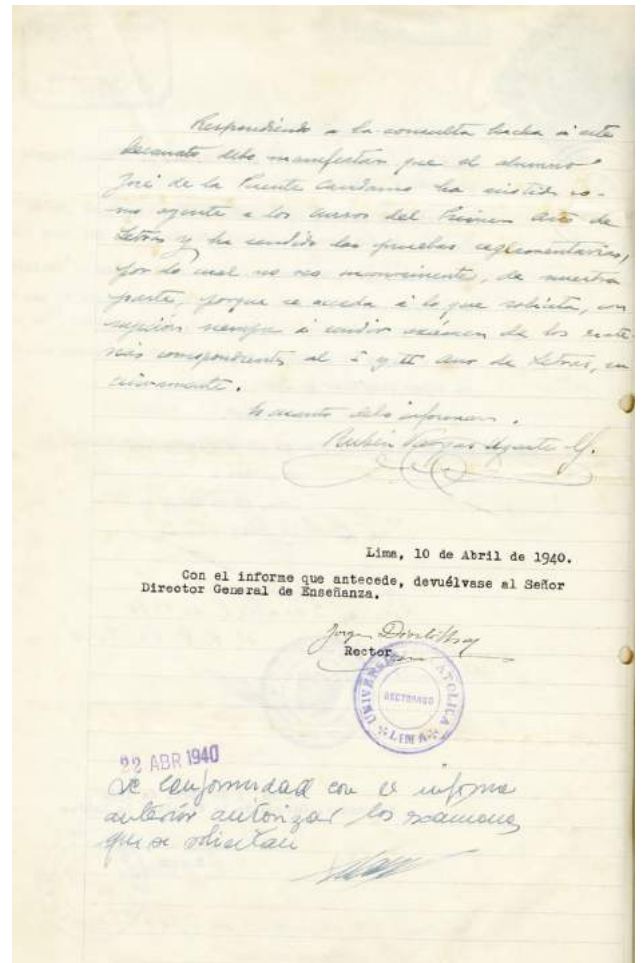 Respondiendo a la consulta hecha a este
Decanato debo manifestar que el alumno
José de la Puente Candamo ha asistido co-
mo oyente a los cursos del Primer Año de
Letras y ha rendido las pruebas reglamentarias,
por lo cual no veo inconveniente, de nuestra
parte, porque se acceda a lo que solicita, con
sujeción siempre a rendir exámen de los
correspondientes al I y II Año de Letras, su
cesivamente.
Es cuanto debo informar.
Rubén Vargas Ugarte
Lima, 10 de Abril de 1940.
Con el informe que antecede, devuélvase al Señor
Director General de Enseñanza.
Jorge Dintilhac
Rector
UNIVERSIDAD CATOLICA
RECTORADO
LIMA
22 ABR 1940
De conformidad con el informe
anterior autorizar los exámenes
que se solicitan